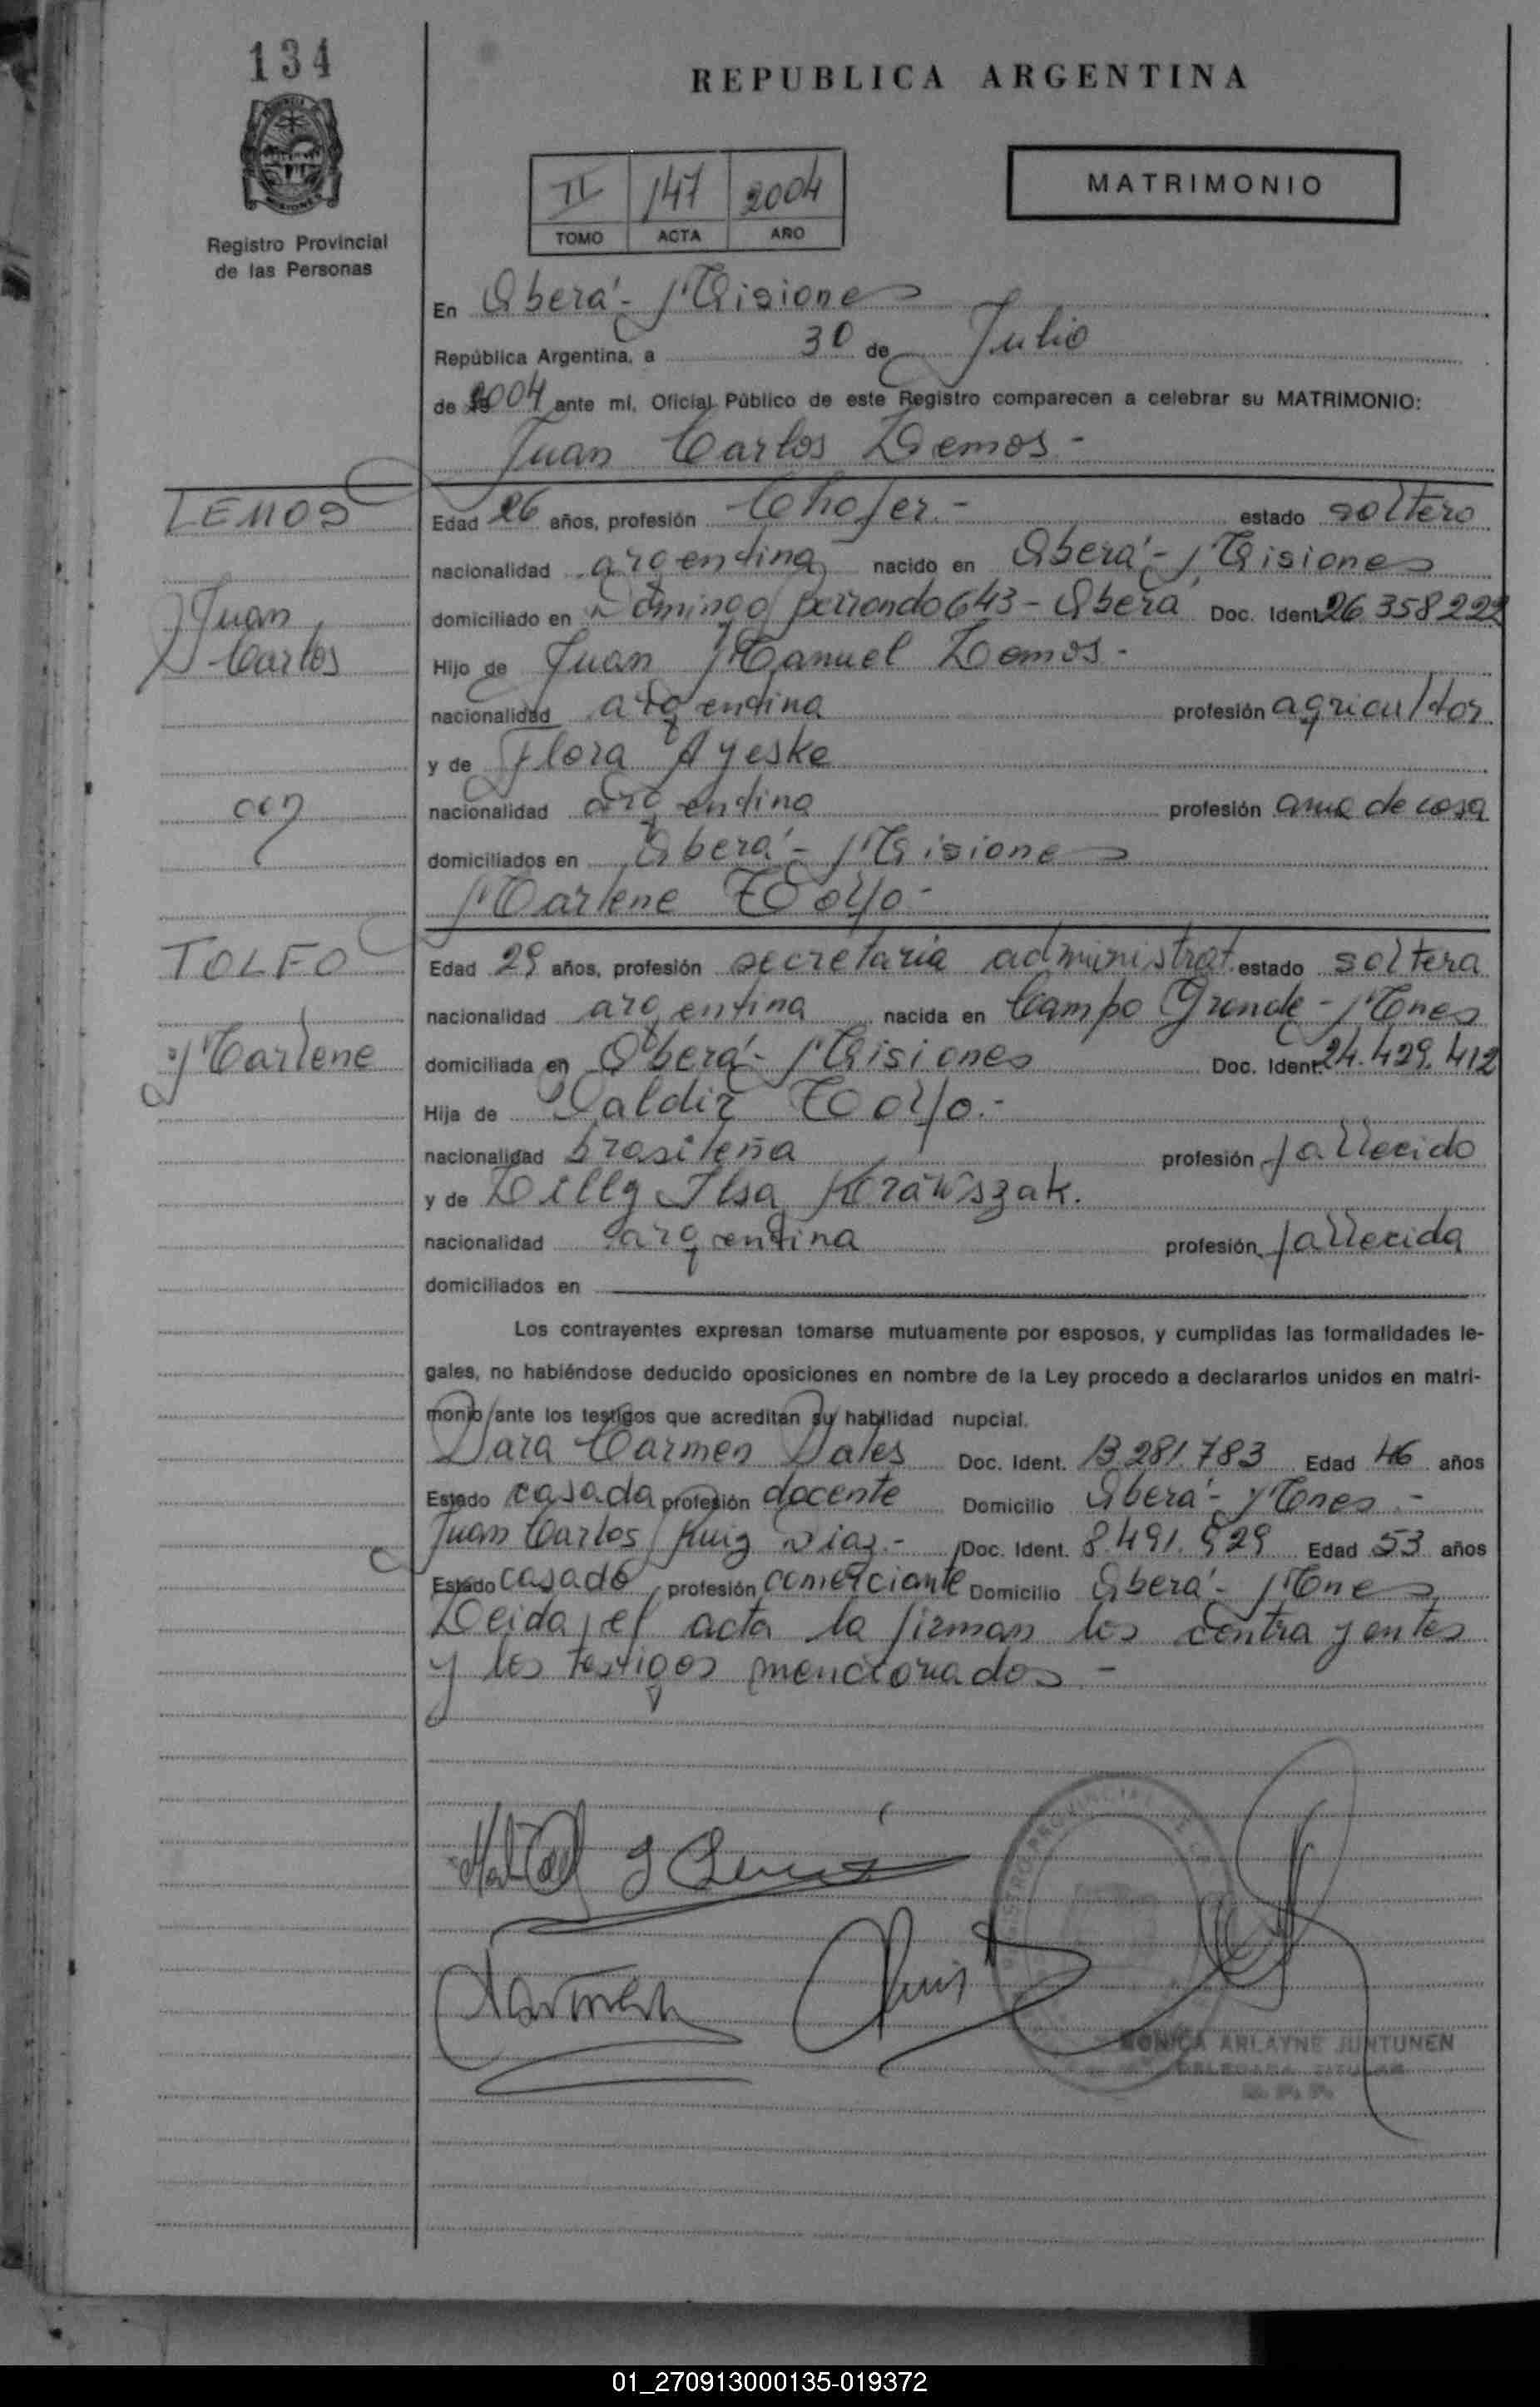 134
REPUBLICA ARGENTINA
MATRIMONIO
II 147 2004
TOMO ACTA AÑO
Registro Provincial
de las Personas
En Oberá - Misiones
República Argentina, a 30 de Julio
de 2004 ante mí, Oficial Público de este Registro comparecen a celebrar su MATRIMONIO:
Juan Carlos Lemos -
LEMOS
Edad 26 años, profesión Chofer - estado soltero
nacionalidad argentina nacido en Oberá - Misiones
Juan
domiciliado en Domingo Berrondo 643 - Oberá Doc. Ident. 26.358.222
Carlos
Hijo de Juan Manuel Lemos -
nacionalidad argentina profesión agricultor
y de Flora Ayeske
con
nacionalidad argentina profesión ama de casa
domiciliados en Oberá - Misiones
Marlene Tolfo -
TOLFO
Edad 29 años, profesión secretaria administrat. estado soltera
nacionalidad argentina nacida en Campo Grande - Mnes
Marlene
domiciliada en Oberá - Misiones Doc. Ident. 24.429.412
Hija de Valdir Tolfo. -
nacionalidad brasileña profesión fallecido
y de Lilly Ilsa Krawszak.
nacionalidad argentina profesión fallecida
domiciliados en
Los contrayentes expresan tomarse mutuamente por esposos, y cumplidas las formalidades le-
gales, no habiéndose deducido oposiciones en nombre de la Ley procedo a declararlos unidos en matri-
monio ante los testigos que acreditan su habilidad nupcial.
Sara Carmen Sales Doc. Ident. 13.281.783 Edad 46 años
Estado casada profesión docente Domicilio Oberá - Mnes -
Juan Carlos Ruiz Diaz. - Doc. Ident. 8.491.929 Edad 53 años
Estado casado profesión comerciante Domicilio Oberá - Mnes
Leida el acta la firman los contrayentes
y los testigos mencionados -
MONICA ARLAYNE JUNTUNEN
DELEGADA TITULAR
01_270913000135-019372